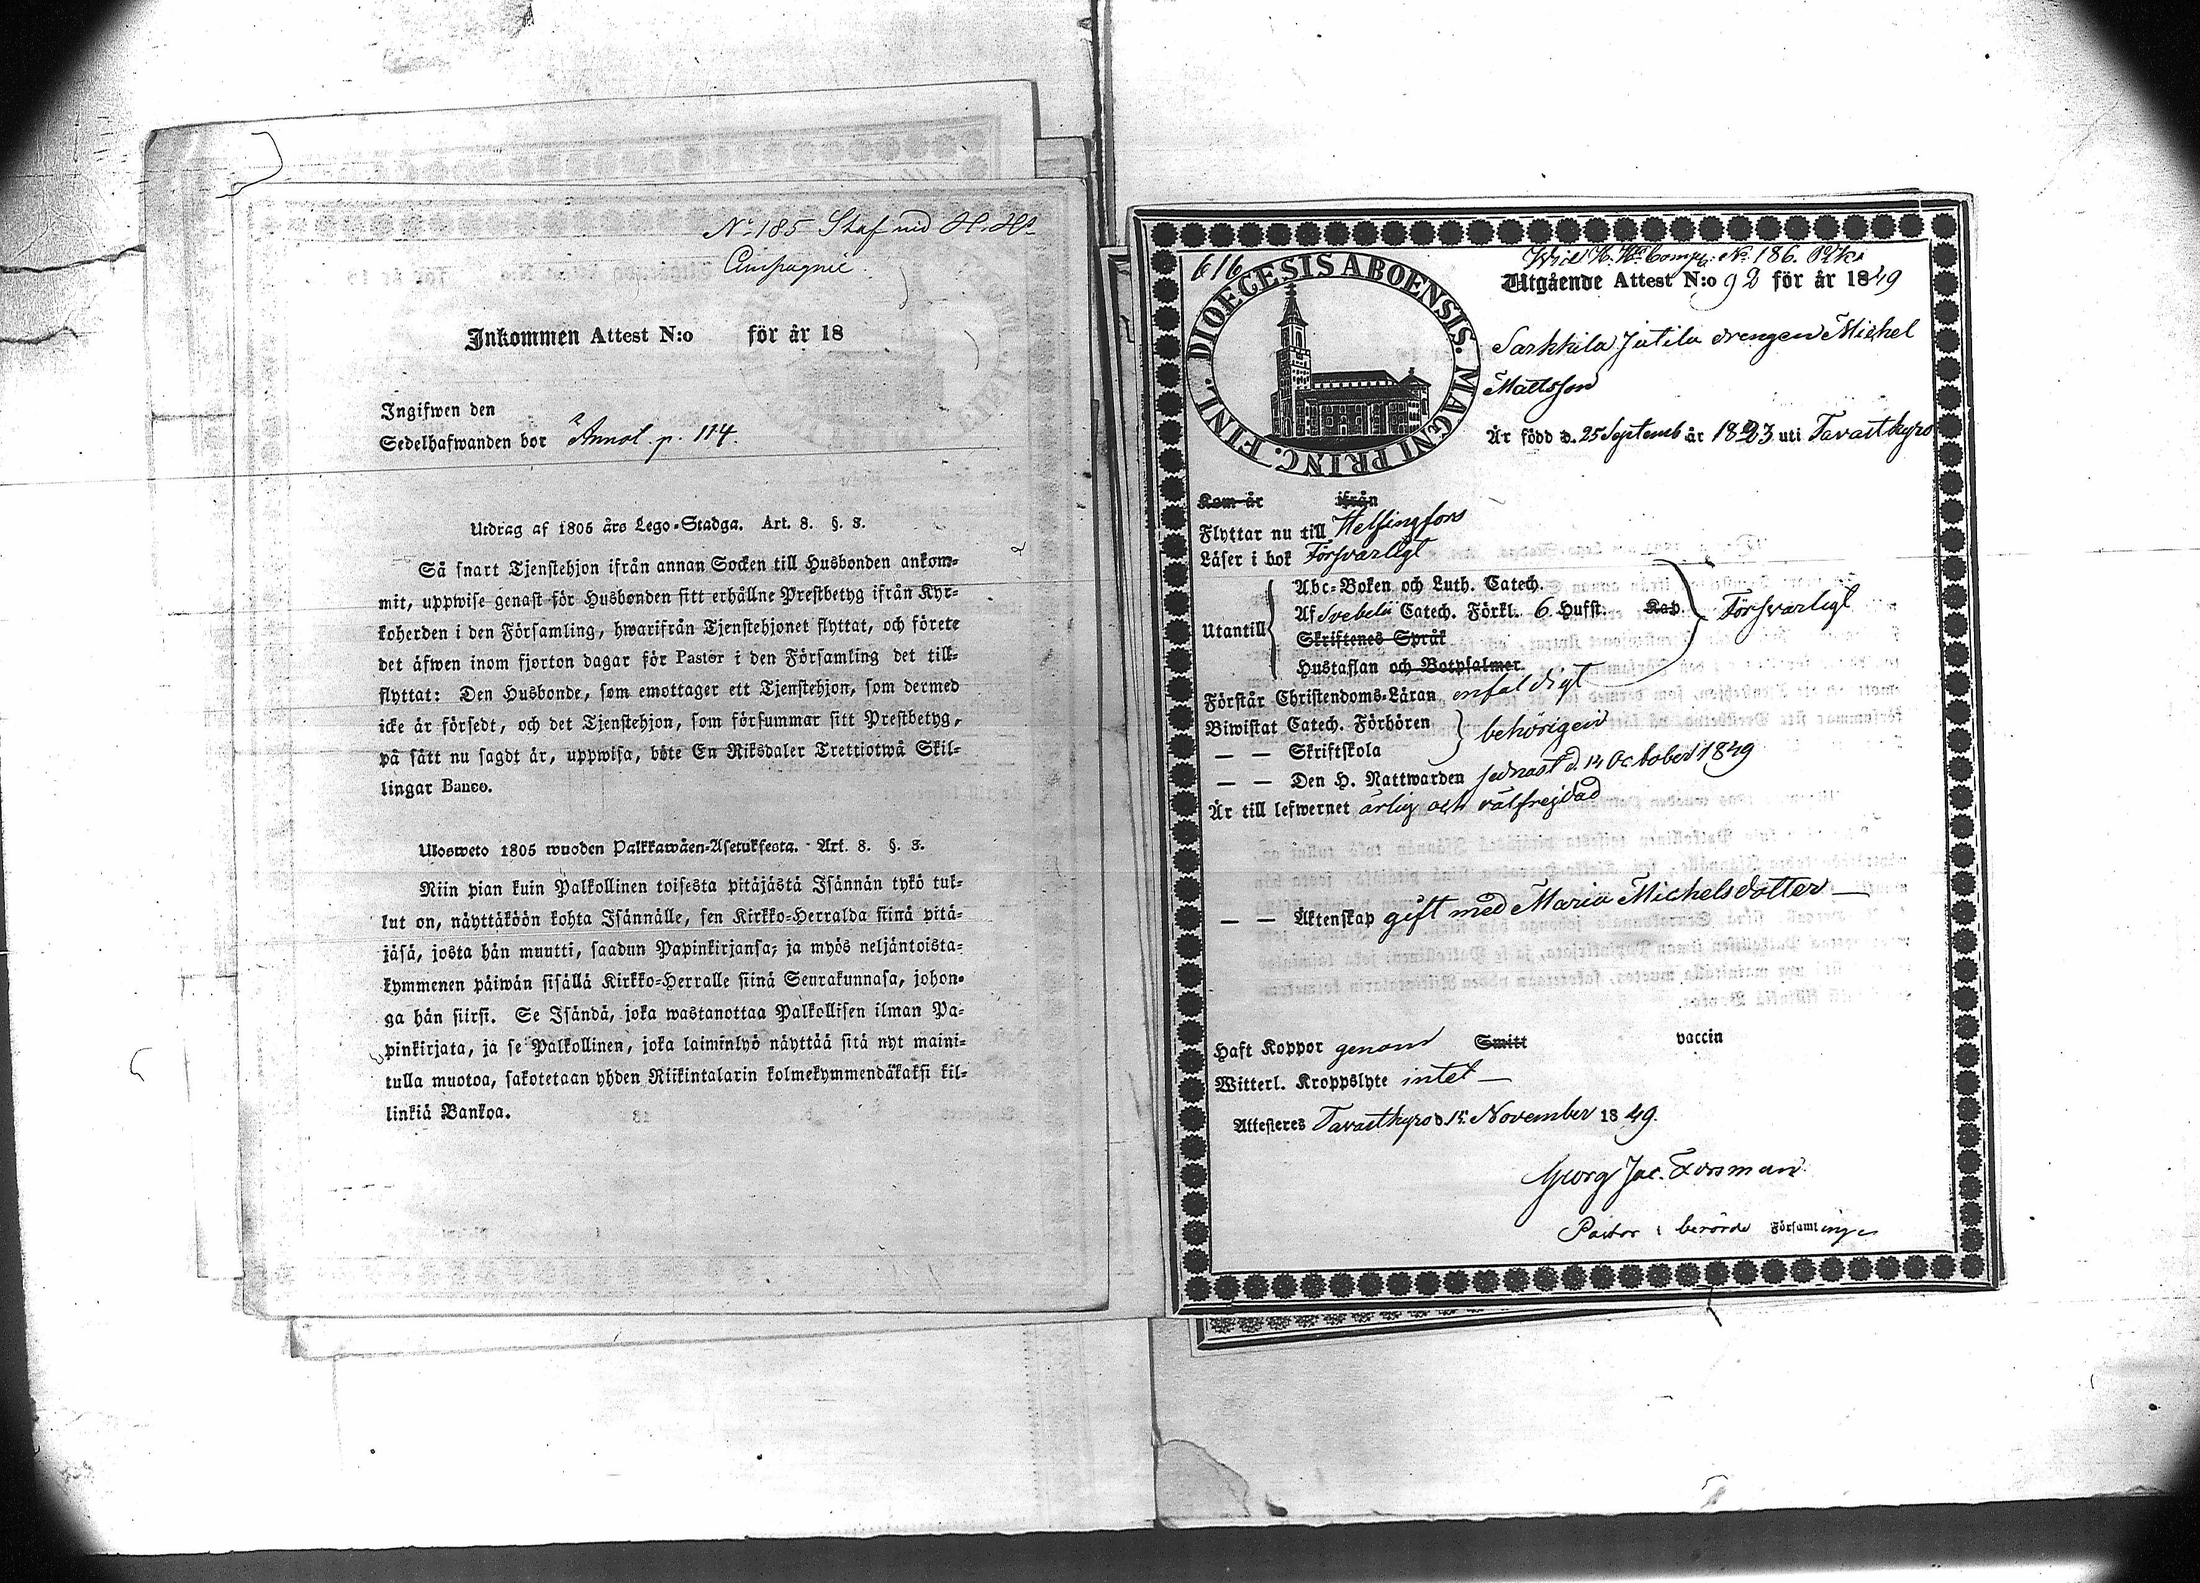 No 185 Staf vid H. H.
Compagnie.
Inkommen Attest N:o för år 18
Ingifwen den
Sedelhafwanden bor Annot. p. 114.
Utdrag af 1805 års Lego-Stadga. Art. 8. §. 3.
Så snart Tjenstehjon ifrån annan Socken till Husbonden ankom-
mit, uppwise genast för Husbonden sitt erhållne Prestbetyg ifrån Kyr-
koherden i den Församling, hwarifrån Tjenstehjonet flyttat, och förete
det äfwen inom fjorton dagar för Pastor i den Församling det till-
flyttat: Den Husbonde, som emottager ett Tjenstehjon, som dermed
icke är försedt, och det Tjenstehjon, som försummar sitt Prestbetyg,
på sätt nu sagdt är, uppwisa, böte En Riksdaler Trettiotwå Skil-
lingar Banco.
Ulosweto 1805 wuoden Palkkawäen-Asetuksesta. Art. 8. §. 3.
Niin pian kuin Palkollinen toisesta pitäjästä Isännän tykö tul-
lut on, näyttäköön kohta Isännälle, sen Kirkko-Herralda siinä pitä-
jäsä, josta hän muutti, saadun Papinkirjansa; ja myös neljäntoista-
kymmenen päiwän sisällä Kirkko-Herralle siinä Seurakunnasa, johon-
ga hän siirsi. Se Isändä, joka wastanottaa Palkollisen ilman Pa-
pinkirjata, ja se Palkollinen, joka laiminlyö näyttää sitä nyt maini-
tulla muotoa, sakotetaan yhden Riikintalarin kolmekymmendäkaksi kil-
linkiä Bankoa.
616
DIOECESIS ABOENSIS. MAGNI PRINC. FINL.
Wid H. Hs Comp: No 186.
Utgående Attest N:o 92 för år 1849
Sarkkila Jutila drengen Michel
Mattsson
Är född d. 25 Septemb år 1823 uti Tavastkyro
Kom år ifrån
Flyttar nu till Helsingfors
Läser i bok Försvarligt
Utantill
Abc-Boken och Luth. Catech.
Af Svebelii Catech. Förkl. 6 Hufst. Kap. Försvarligt
Skriftenes Språk
Hustaflan och Botpsalmer.
Förstår Christendoms-Läran enfaldigt
Biwistat Catech. Förhören behörigen
— — Skriftskola
— — Den H. Nattwarden sednast d. 14 October 1849
Är till lefwernet ärlig och välfrejdad
— — Äktenskap gift med Maria Michelsdotter —
Haft Koppor genom Smitt vaccin
Witterl. Kroppslyte intet —
Attesteres Tavastkyro d. 15 November 1849.
Georg Jac. Forsman
Pastor i berörde Församlinge